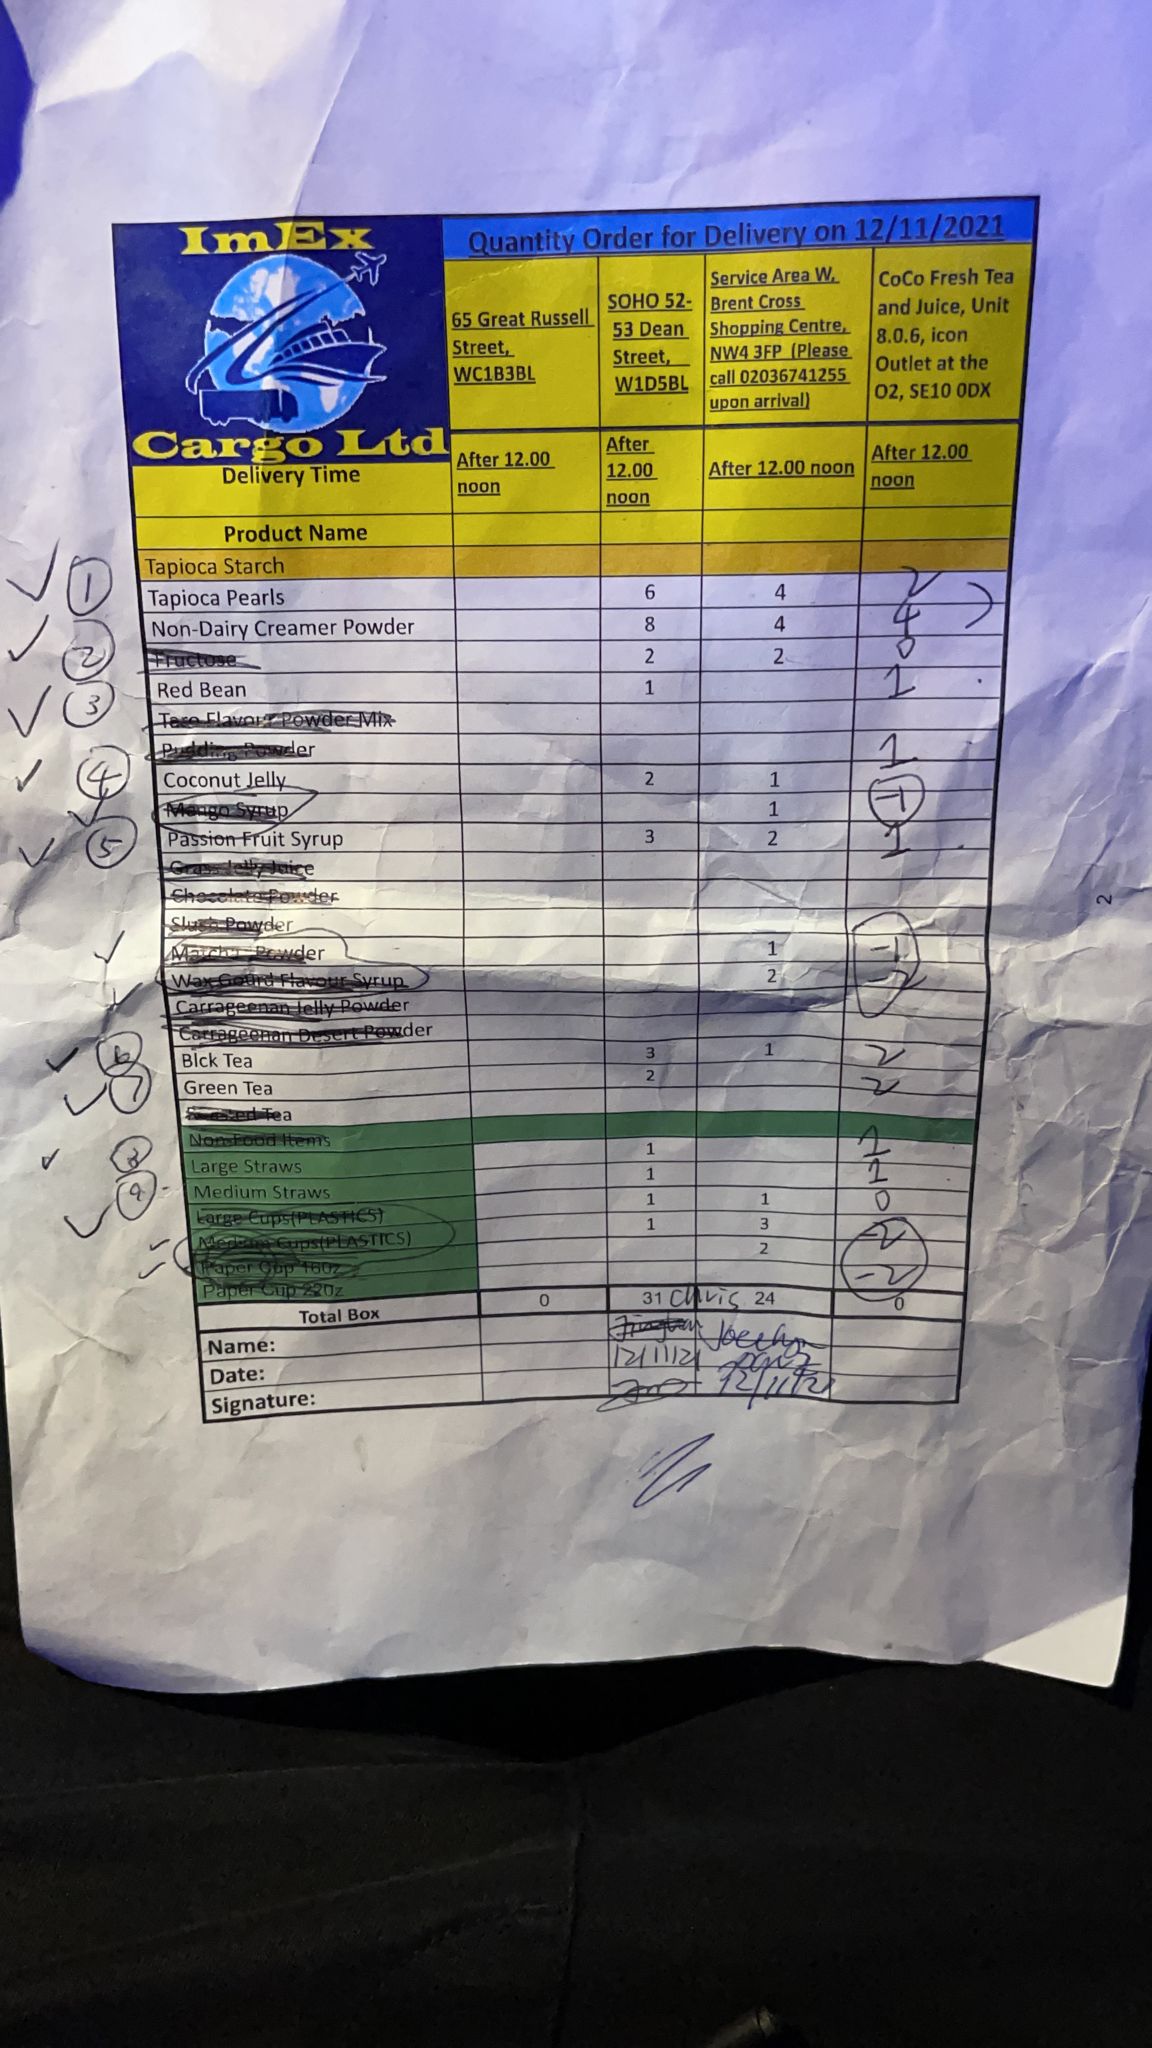 ImEx
Cargo Ltd
Quantity Order for Delivery on 12/11/2021
65 Great Russell
Street,
WC1B3BL
SOHO 52-
53 Dean
Street,
W1D5BL
Service Area W,
Brent Cross
Shopping Centre,
NW4 3FP (Please
call 02036741255
upon arrival)
CoCo Fresh Tea
and Juice, Unit
8.0.6, icon
Outlet at the
O2, SE10 0DX
Delivery Time
After 12.00
noon
After
12.00
noon
After 12.00 noon
After 12.00
noon
Product Name
Tapioca Starch
1 Tapioca Pearls 6 4 2
Non-Dairy Creamer Powder 8 4 4
2 Fructose 2 2 0
3 Red Bean 1 1
Taro Flavour Powder Mix
Pudding Powder 1
4 Coconut Jelly 2 1
Mango Syrup 1 -1
5 Passion Fruit Syrup 3 2 1
Grass Jelly Juice
Chocolate Powder
Slush Powder
Matcha Powder 1 -1
Wax Gourd Flavour Syrup 2 -2
Carrageenan Jelly Powder
Carrageenan Desert Powder
6 Blck Tea 3 1 2
7 Green Tea 2 2
Tea
Non-Food Items
8 Large Straws 1 1
9 Medium Straws 1 1
Large Cups(PLASTICS) 1 1 0
Medium Cups(PLASTICS) 1 3 -2
Paper Cup 16oz 2 -2
Paper Cup 22oz
Total Box 0 31 Chris 24 0
Name:
Date: 12/11/21
Signature: 12/11/21
2